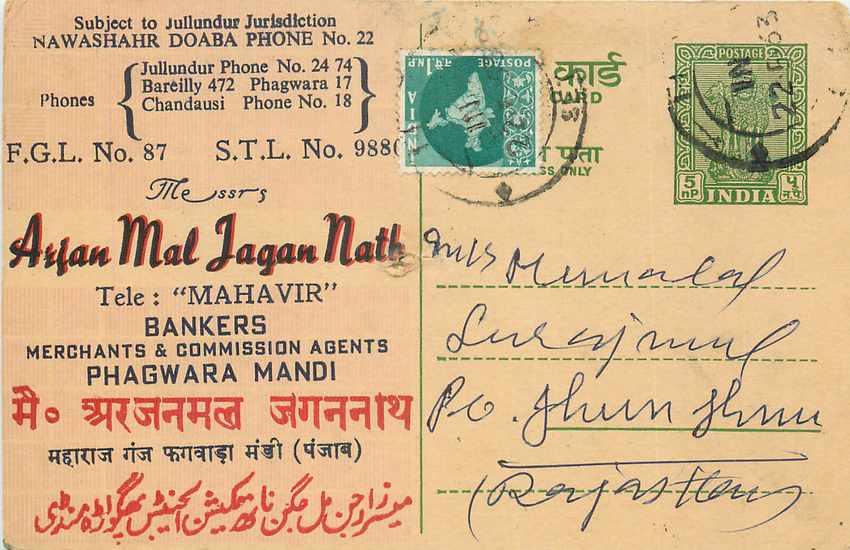 Subject to Jullundur Jurisdiction
NAWASHAHR DOABA PHONE No. 22
Phones
Jullundur Phone No. 24 74
Bareilly 472 Phagwara 17
Chandausi Phone No. 18
F.G.L. No. 87 S.T.L. No. 9880
Messrs
Arjan Mal Jagan Nath
Tele : "MAHAVIR"
BANKERS
MERCHANTS & COMMISSION AGENTS
PHAGWARA MANDI
मै० अरजनमल जगननाथ
महाराज गंज फगवाड़ा मंडी (पंजाब)
میسرز ارجن مل جگن ناتھ کمیشن ایجنٹس پھگواڑہ منڈی
POSTAGE
1 N.P.
INDIA
कार्ड
CARD
पता
SS ONLY
POSTAGE
5 nP
INDIA
५ न.प.
22 63
M/s
Surajmal
P.O. Jhunjhunu
(Rajasthan)